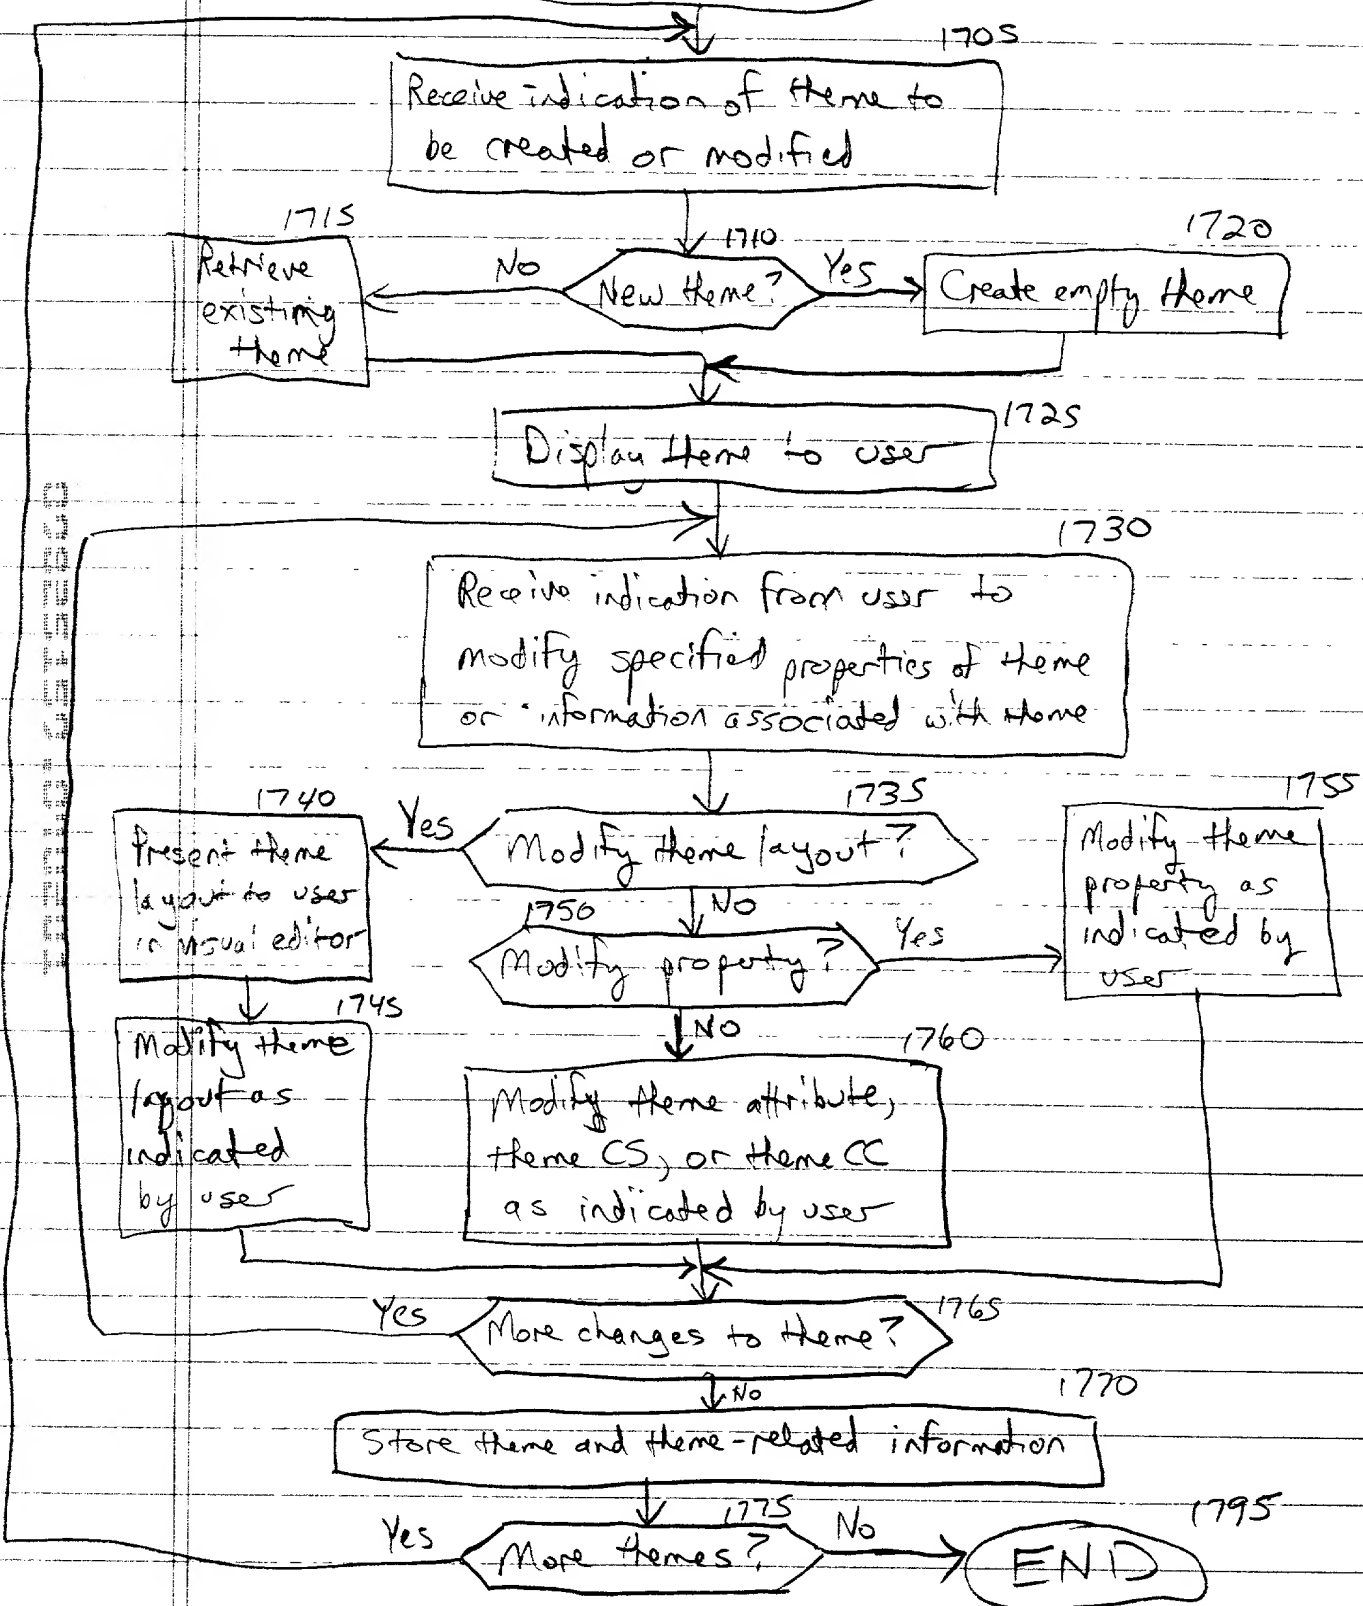 1705
Receive indication of theme to
be created or modified
1715
Retrieve
existing
theme
No
1710
New theme?
Yes
1720
Create empty theme
1725
Display theme to user
1730
Receive indication from user to
modify specified properties of theme
or information associated with theme
1735
Modify theme layout?
Yes
1740
Present theme
layout to user
in visual editor
1745
Modify theme
layout as
indicated
by user
No
1750
Modify property?
Yes
1755
Modify theme
property as
indicated by
user
No
1760
Modify theme attribute,
theme CS, or theme CC
as indicated by user
1765
More changes to theme?
Yes
No
1770
Store theme and theme-related information
1775
More themes?
Yes
No
1795
END